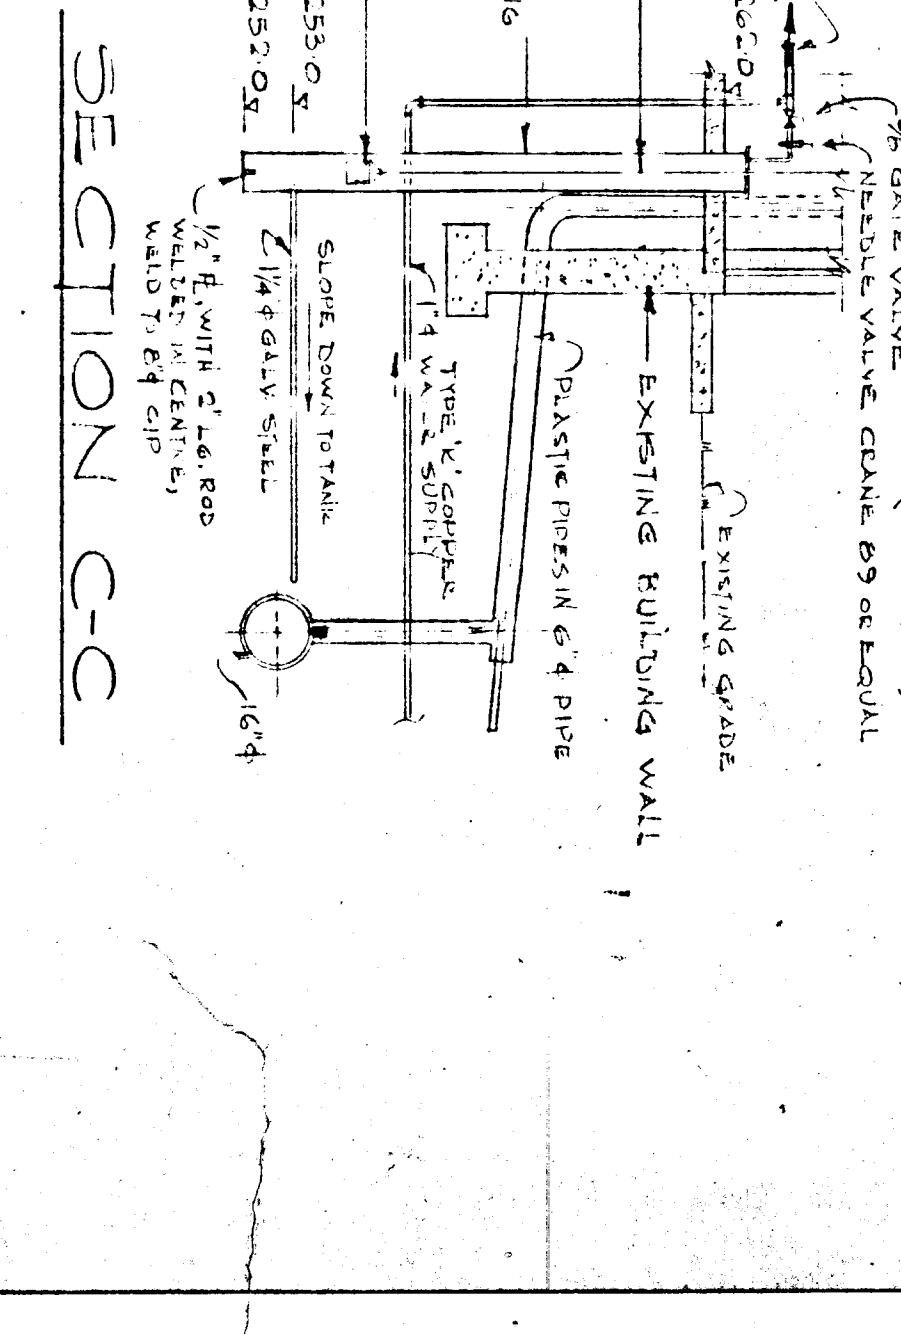 GATE VALVE
NEEDLE VALVE CRANE 89 OR EQUAL
262.0
EXISTING GRADE
EXISTING BUILDING WALL
PLASTIC PIPES IN 6"φ PIPE
TYPE 'K' COPPER
1"φ SUPPLY
SLOPE DOWN TO TANK
1¼"φ GALV. STEEL
253.0
252.0
16"φ
1/2" PL, WITH 2' LG. ROD
WELDED IN CENTRE,
WELD TO 8"φ CIP
SECTION C-C